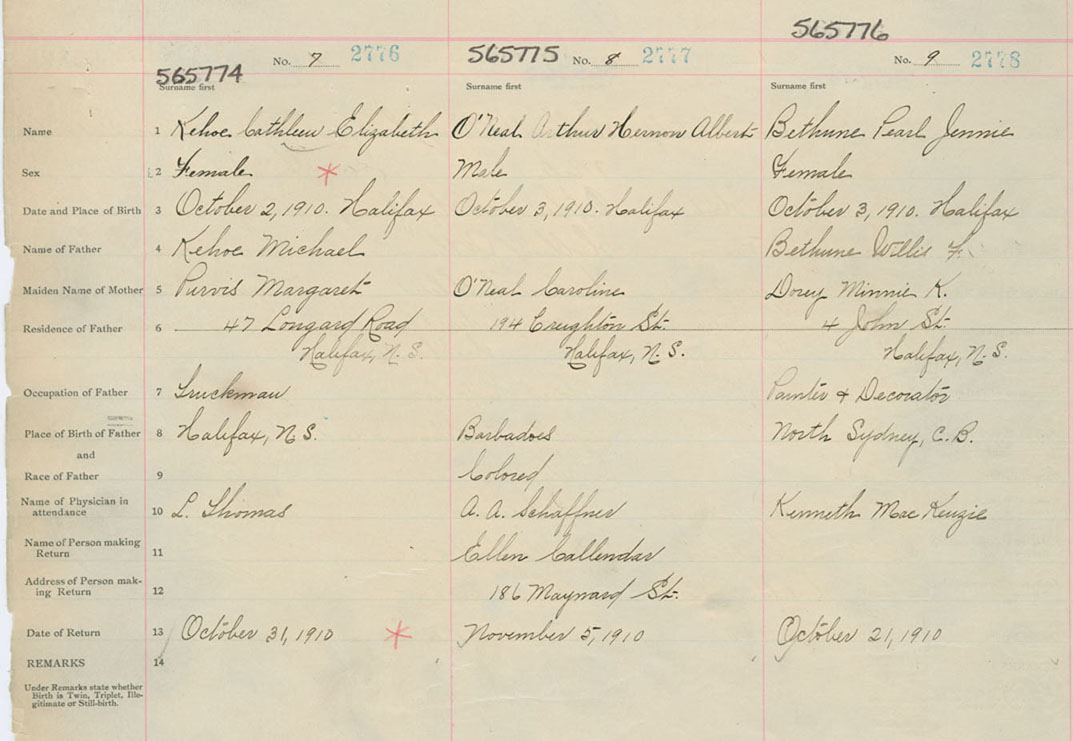 565776
No. 7 2776 565775 No. 8 2777 No. 9 2778
565774
Surname first Surname first Surname first
Name 1 Kehoe Cathleen Elizabeth O'Neal Arthur Hernon Albert Bethune Pearl Jennie
Sex 2 Female * Male Female
Date and Place of Birth 3 October 2, 1910. Halifax October 3, 1910. Halifax October 3, 1910. Halifax
Name of Father 4 Kehoe Michael Bethune Willis F.
Maiden Name of Mother 5 Purvis Margaret O'Neal Caroline Dorey Minnie K.
Residence of Father 6 47 Longard Road 194 Creighton St. 4 John St.
Halifax, N.S. Halifax, N.S. Halifax, N.S.
Occupation of Father 7 Truckman Painter & Decorator
Place of Birth of Father 8 Halifax, N.S. Barbadoes North Sydney, C.B.
and
Race of Father 9 Colored
Name of Physician in
attendance 10 L. Thomas A. A. Schaffner Kenneth Mac Kenzie
Name of Person making
Return 11 Ellen Callendar
Address of Person mak-
ing Return 12 186 Maynard St.
Date of Return 13 October 31, 1910 * November 5, 1910 October 21, 1910
REMARKS 14
Under Remarks state whether
Birth is Twin, Triplet, Ille-
gitimate or Still-birth.